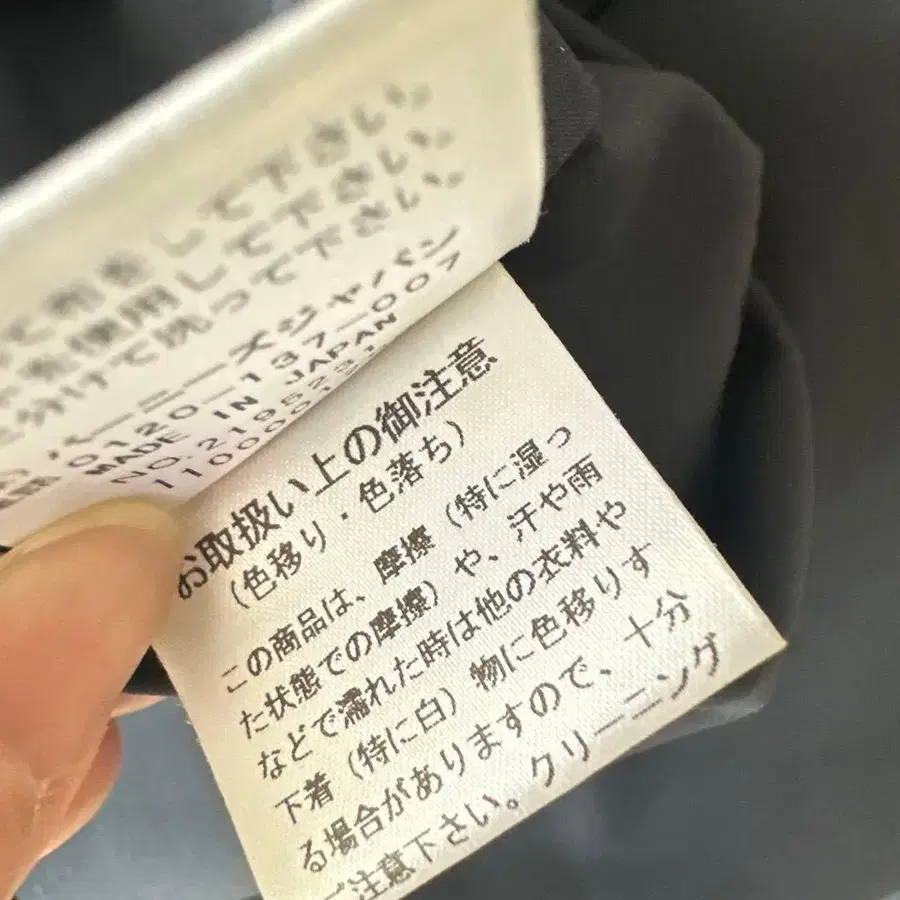 て布をして下さい。
を使用して下さい。
分けて洗って下さい。
バーニーズジャパン
0120-137-007
MADE IN JAPAN
NO.2195231
110000
お取扱い上の御注意
(色移り・色落ち)
この商品は、摩擦(特に湿っ
た状態での摩擦)や、汗や雨
などで濡れた時は他の衣料や
下着(特に白)物に色移りす
る場合がありますので、十分
ご注意下さい。クリーニング